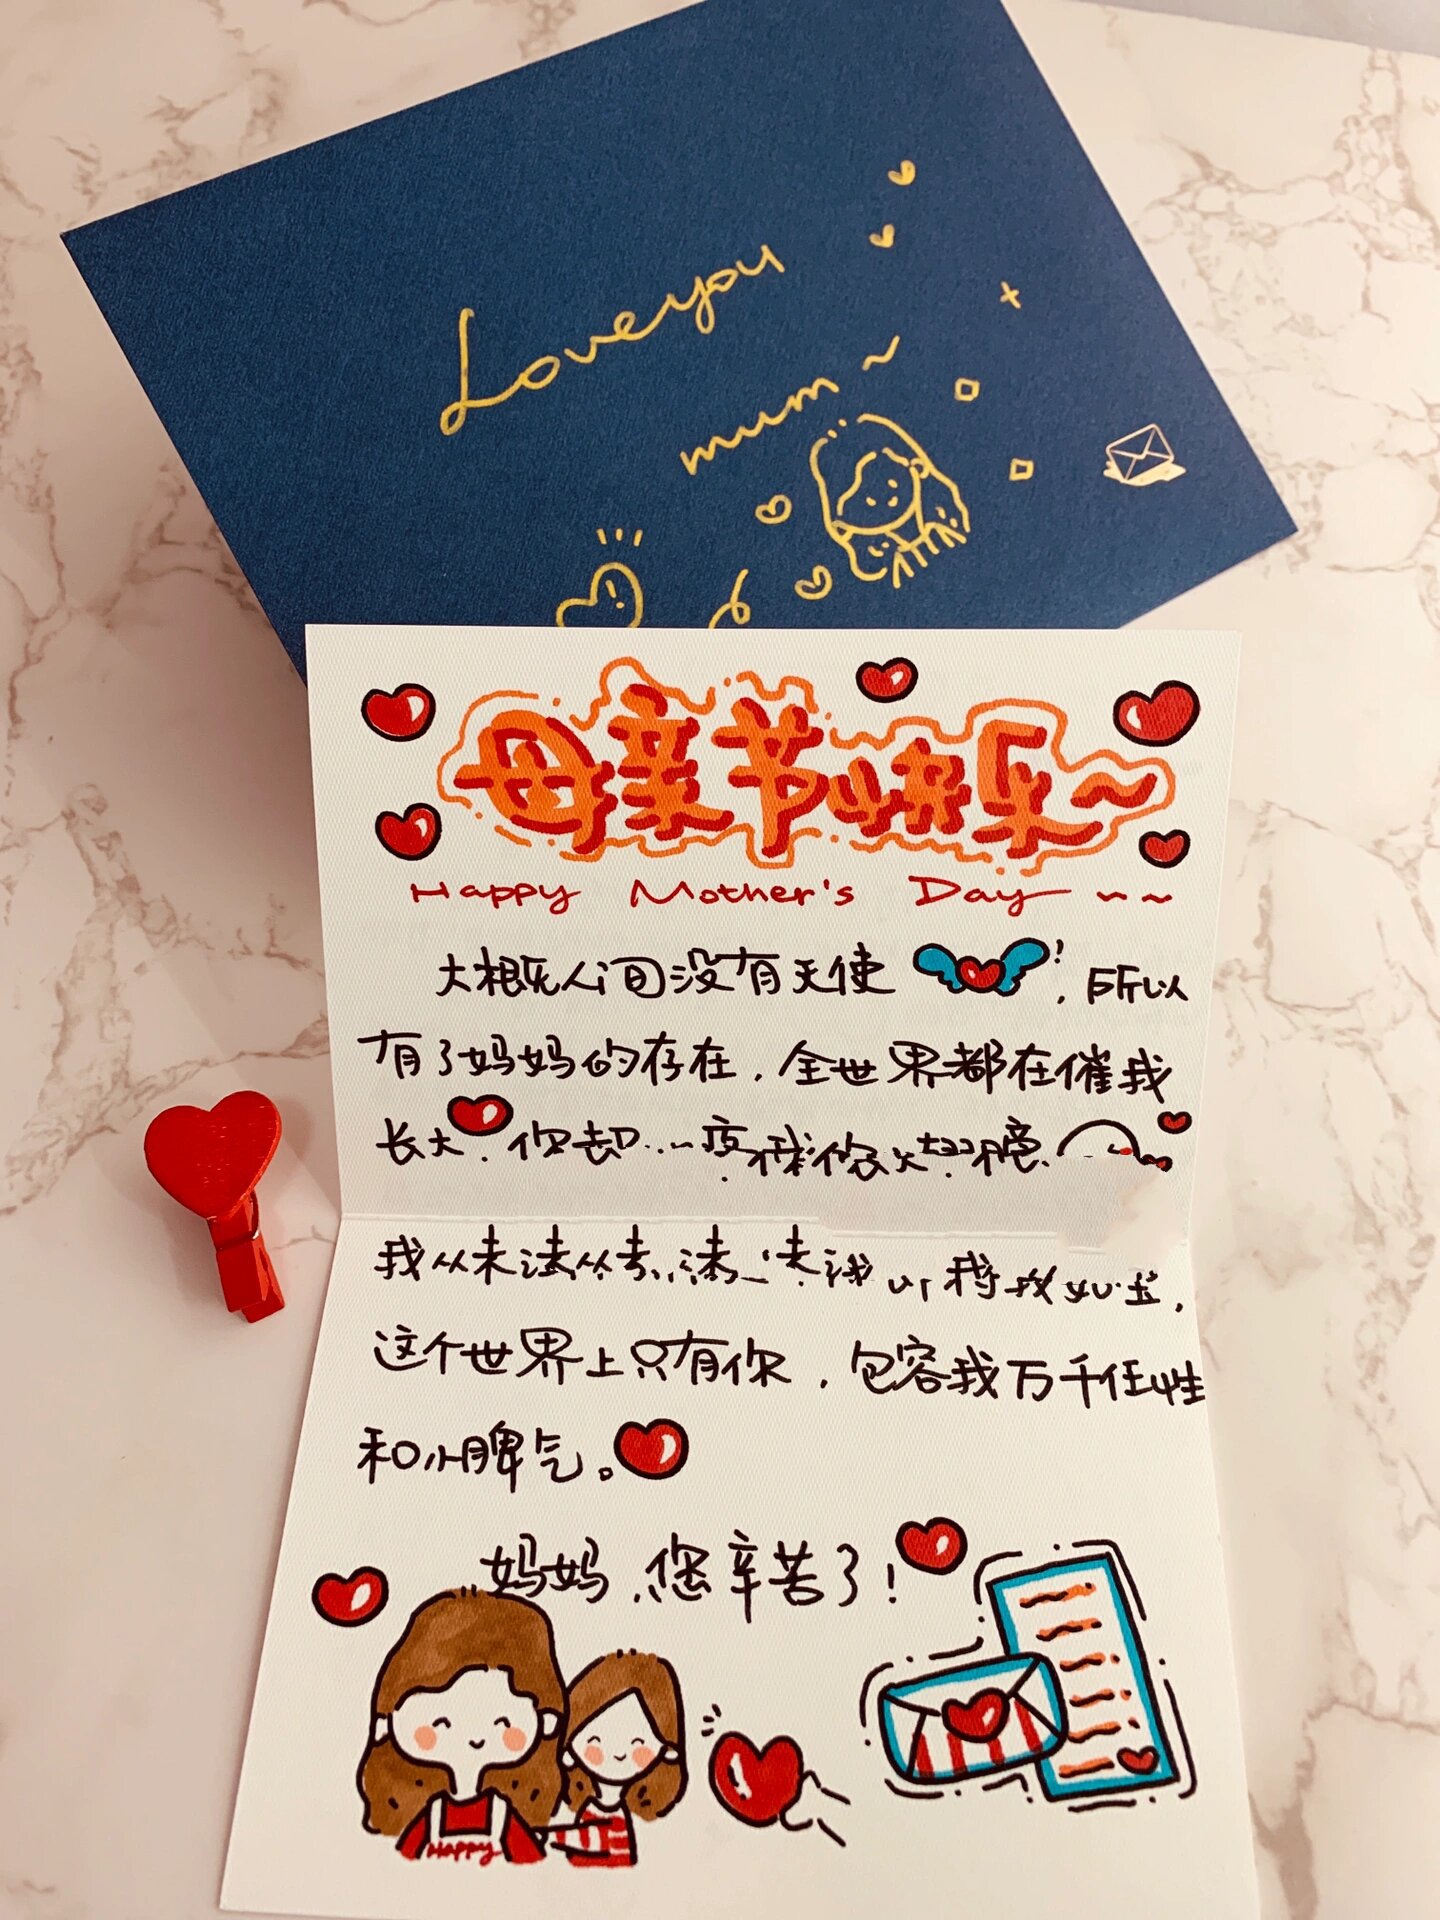 Love you
mum~
母亲节快乐~
Happy Mother's Day ~~
大概人间没有天使！，所以
有了妈妈的存在，全世界都在催我
长大，你却
我从未
这个世界上只有你，包容我万千任性
和小脾气。
妈妈，您辛苦了！
Happy